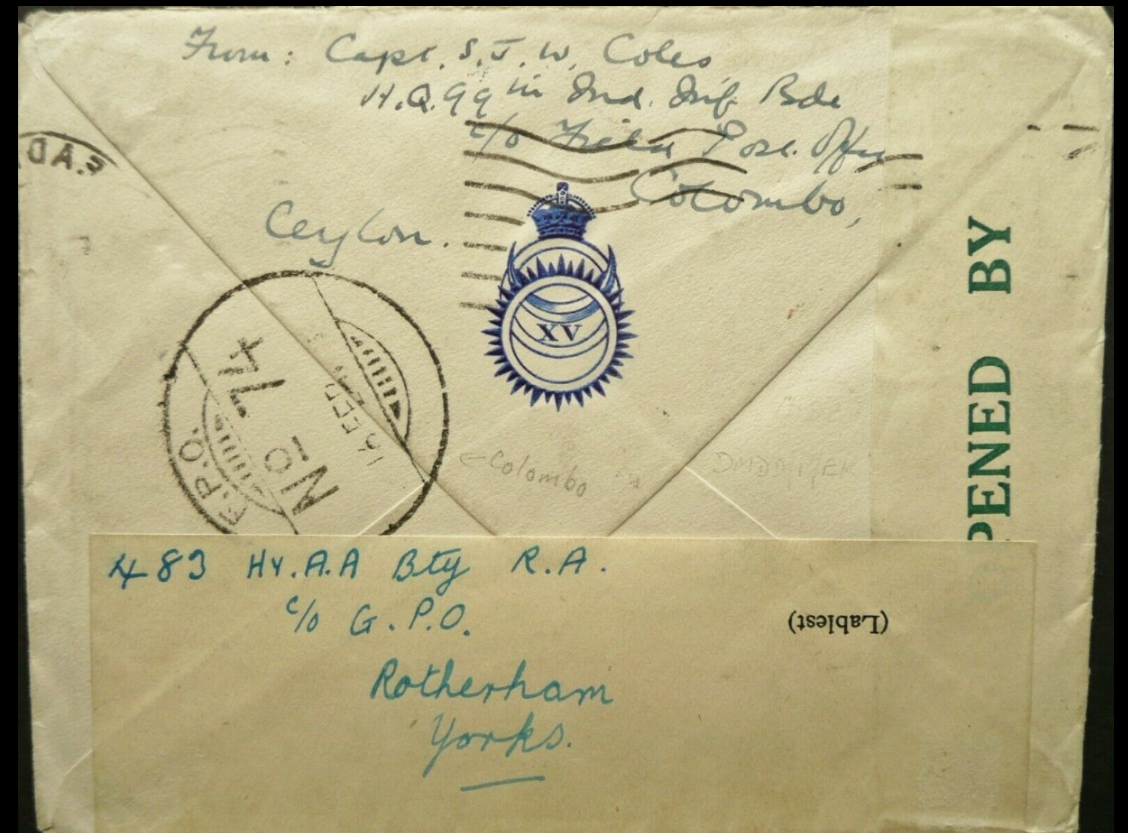 From: Capt. S.J.W. Coles
H.Q. 99 Ind. Inf. Bde
c/o Field Post Office
Colombo,
Ceylon.
XV
F.P.O.
No 74
Colombo
PENED BY
483 Hy. A.A Bty R.A.
c/o G.P.O.
(Lablest)
Rotherham
Yorks.